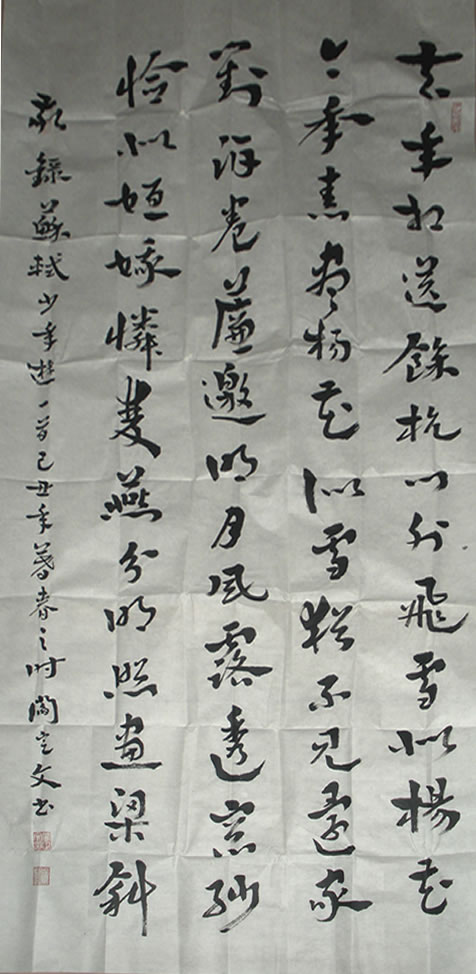 去年相送餘杭门外飛雪似楊花
今年春盡杨花似雪猶不见還家
對酒卷簾邀明月風露透窗紗
恰似姮娥憐雙燕分明照畫梁斜
敬錄蘇軾少年遊一首己丑年暮春之时閻文书